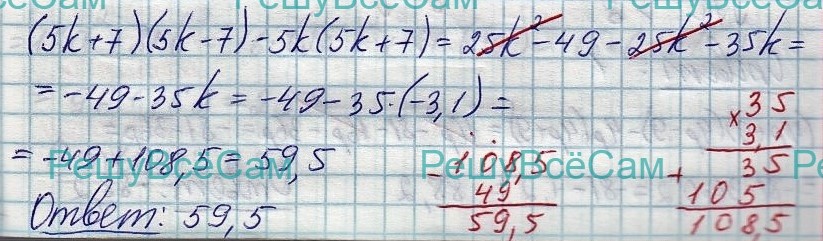 РешуВсёСам РешуВсёСам
(5k+7)(5k-7)-5k(5k+7)=25k²-49-25k²-35k=
=-49-35k=-49-35·(-3,1)=
=-49+108,5=59,5
Ответ: 59,5
-108,5
49
59,5
×35
3,1
+35
105
108,5
РешуВсёСам РешуВсёСам Ре